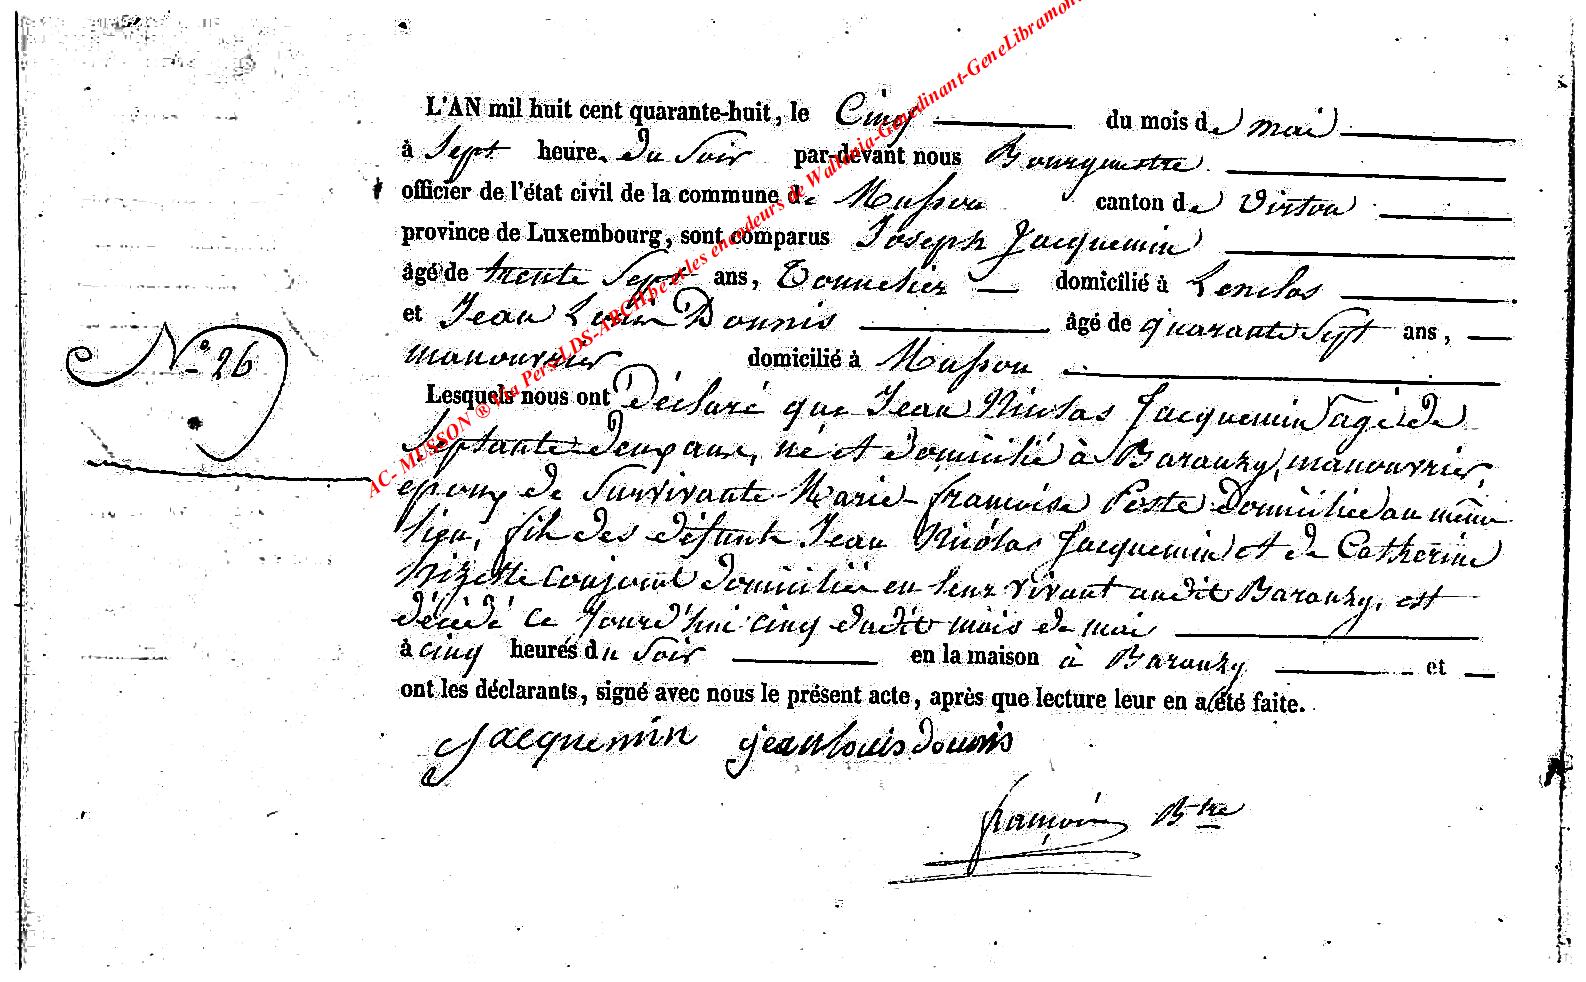 L'AN mil huit cent quarante-huit, le Cinq du mois de mai
à Sept heure. du Soir par-devant nous Bourgmestre
officier de l'état civil de la commune de Musson canton de Virton
province de Luxembourg, sont comparus Joseph Jacquemin
âgé de trente Sept ans, Tonnelier domicilié à Lenclos
et Jean Louis Donnis âgé de quarante Sept ans,
manouvrier domicilié à Musson
N° 26
Lesquels nous ont Déclaré que Jean Nicolas Jacquemin agé de
Septante deux ans, né et domicilié à Baranzy, manouvrier,
epoux de Survivante Marie françoise Poste domiciliée au même
lieu, fils des défunts Jean Nicolas Jacquemin et de Catherine
conjoint domiciliés en leur vivant audit Baranzy, est
décédé ce Jourd'hui cinq dudit mois de mai
à cinq heures du Soir en la maison à Baranzy et
ont les déclarants, signé avec nous le présent acte, après que lecture leur en a été faite.
Jacquemin jean louis donnis
françois Btre
AC- MUSSON ® Via Pers-LDS-ARCH.be et les encodeurs de Wallonia-Genedinant-GeneLibramon